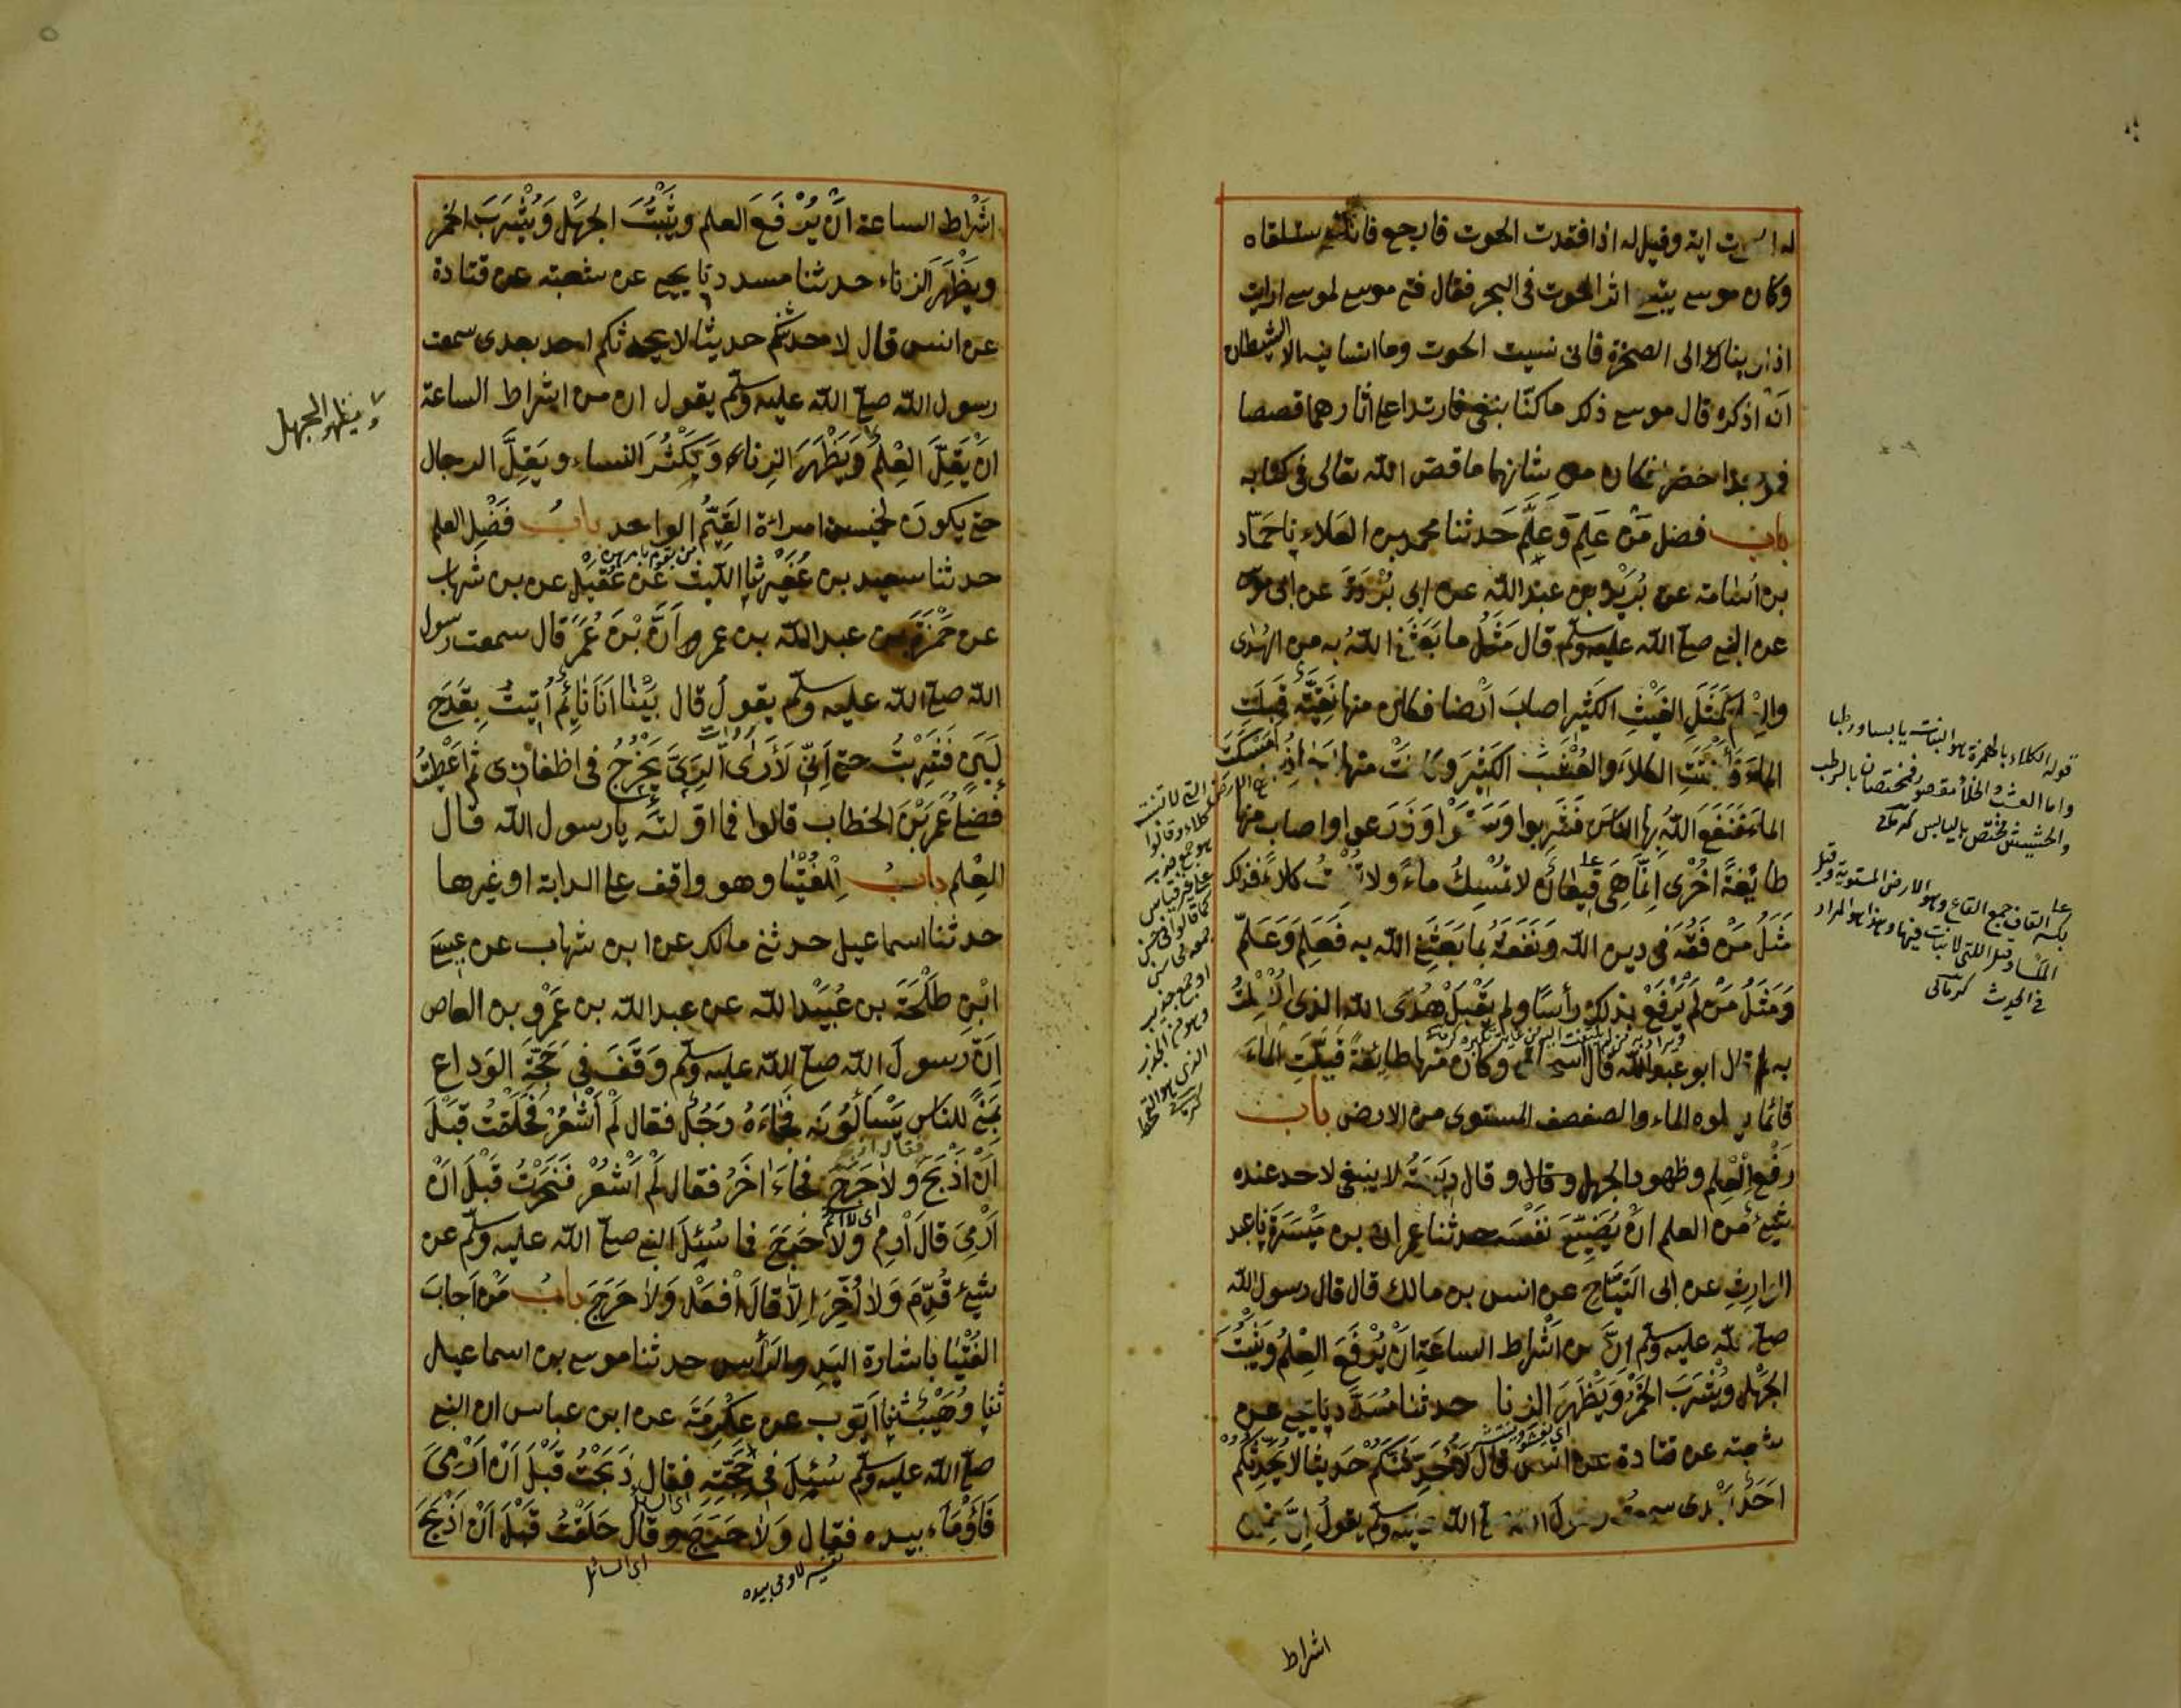 له الحوت اية وقيل له اذا فقدت الحوت فارجع فانك ستلقاه
وكان موسى يتبع اثر الحوت في البحر فقال فتى موسى لموسى ارايت
اذ اوينا الى الصخرة فاني نسيت الحوت وما انسانيه الا الشيطان
ان اذكره قال موسى ذلك ما كنّا نبغي فارتدا على اثارهما قصصا
فوجدا خضرا فكان من شانهما ما قصّ الله تعالى في كتابه
باب فضل مَنْ عَلِمَ وَعَلَّمَ حَدثنا محمد بن العَلاء نا حَمّاد
بن أسَامة عن بُرَيْد بن عبد الله عن ابي بُرْدَةَ عن ابي موسى
عن النبي صلى الله عليه وسلم قال مَثَلُ ما بَعَثَنِي اللهُ به من الهُدى
والعلم كَمَثَلِ الغَيْثِ الكَثِيرِ اصابَ اَرْضا فكان منها نَقِيَّةٌ قَبِلَتِ
الماءَ فَأَنْبَتَتِ الكلاءَ والعُشْبَ الكَثِيْرَ وكانَتْ منها اَجَاذِبُ اَمْسَكَتِ
الماءَ فَنَفَعَ اللهُ بها الناسَ فَشَرِبوا وَسَقَوْا وَزَرَعوا واصاب منها
طائِفةً اُخْرى اِنَّمَا هِيَ قِيعَانٌ لا تُمْسِكُ ماءً ولا تُنْبِتُ كلاءً فذلك
مَثَلُ مَنْ فَقُهَ في دين الله ونَفَعَهُ بما بَعَثَنِي الله به فَعَلِمَ وَعَلَّمَ
وَمَثَلُ مَنْ لَمْ يَرْفَعْ بذلك رأسًا ولم يَقْبَلْ هُدَى الله الذي اُرْسِلْتُ
به قال ابو عبد الله قال اسحاق وكان منها طائِفةٌ قَيَّلَتِ الماءَ
قاع يعلوه الماء والصفصف المستوي من الارض باب
رَفْعِ الْعِلم وظهور الجهل وقال ربيعَةُ لا ينبغي لاحد عنده
شَيْءٌ من العلم انْ يُضَيِّعَ نَفْسَه حدثنا عمران بن مَيْسَرَة نا عبد
الوارثِ عن ابي التَّيَّاحِ عن انس بن مالك قال قال رسول الله
صلى الله عليه وسلم اِنَّ من اَشْراط الساعَةِ انْ يُرْفَعَ العِلْمُ ويَثْبُتَ
الجَهْلُ ويُشْرَبَ الخَمْرُ وَيَظْهَرَ الزنا حدثنا مُسَدَّد نا يحيى عن
شعبة عن قتادة عن انس قال لَاُحَدِّثَنَّكُمْ حديثا لا يُحَدِّثُكُمْ
اَحَدٌ بَعْدِي سمعتُ رسولَ الله صلى الله عليه وسلم يقولُ اِنَّ مِنْ
قوله الكلاء بالهمزة هو النبات يابسا ورطبا
واما العشب والخلأ مقصور فمختصان بالرطب
والحشيش مختص باليابس كرماني
بكسر القاف جمع القاع وهو الارض المستوية وقيل
الملساء وقيل التي لا نبات فيها وهذا هو المراد
في الحديث كرماني
اشراط
اَشْراط الساعة انْ يُرْفَعَ العلم ويَثْبُتَ الجَهْل وَيُشْرَبَ الخمر
ويَظْهَرَ الزناء حدثنا مسدد نا يحيى عن شعبة عن قتادة
عن انس قال لاحدثنكم حديثا لا يحدثكم احد بعدي سمعت
رسول الله صلى الله عليه وسلم يقول ان من اشراط الساعة
انْ يَقِلَّ العِلْمُ وَيَظْهَرَ الزناء وَيَكْثُرَ النساء ويَقِلَّ الرجال
حتى يكونَ لخمسين امراة القَيِّمُ الواحد بابُ فَضْلِ العلم
حدثنا سعيد بن عُفَيْر ثنا الليث عَنْ عُقَيْلٍ عن بن شهاب
عن حَمْزَةَ بن عبد الله بن عمر اَنَّ بْنَ عُمَرَ قال سمعت رسول
الله صلى الله عليه وسلم يقول قال بَيْنَا اَنَا نَائِمٌ اُتِيتُ بِقَدَحِ
لَبَنٍ فَشَرِبْتُ حتى اِنّي لَأَرَى الرِّيَّ يَخْرُجُ في اظفاري ثم اَعْطَيْتُ
فَضْلي عُمَرَ بْنَ الخطاب قالوا فما اوّلتَه يا رسول الله قال
العِلم بابُ الفُتْيَا وهو واقف على الدابة او غيرها
حدثنا اسماعيل حدثني مالك عن ابن شهاب عن عيسى
ابْنِ طَلْحَةَ بن عُبَيْد الله عن عبد الله بن عَمْرِو بن العاص
اَنّ رسولَ الله صلى الله عليه وسلم وَقَفَ في حَجَّةِ الوَداع
بِمِنًى للناس يَسْأَلُوْنَه فجاءَهُ رَجُلٌ فقال لَمْ اَشْعُرْ فحَلَقْتُ قَبْلَ
اَنْ اَذْبَحَ وَلاحَرَجَ فجاءَ اخَرُ فقال لَمْ اَشْعُرْ فَنَحَرْتُ قَبْلَ اَنْ
اَرْمِيَ قالَ اَرْمِ وَلَا حَرَجَ فما سُئِلَ النبي صلى الله عليه وسلم عن
شَيْءٍ قُدِّمَ وَلا اُخِّرَ اِلّا قالَ اَفْعَلْ وَلا حَرَجَ بابُ مَنْ اَجابَ
الفُتْيَا باشارة اليَدِ والرَأسِ حدثنا موسى بن اسماعيل
ثنا وُهَيْبٌ ثنا اَيّوب عن عِكْرِمَةَ عن ابن عباس ان النبي
صلى الله عليه وسلم سُئِلَ في حَجَّتِهِ فقال ذَبَحْتُ قَبْلَ اَنْ اَرْمِيَ
فَأَوْمَاءَ بيده فقال وَلَا حَرَجَ وقال حَلَقْتُ قَبْلَ اَنْ اَذْبَحَ
ويظهر الجهل
اي السائل
تفسير لاومى بيده